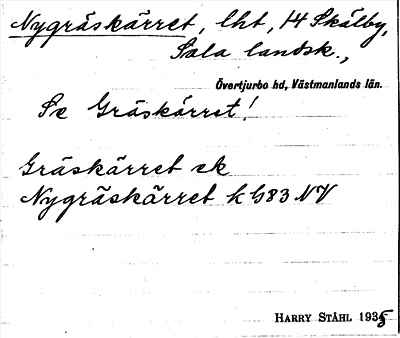 Nygräskärret, lht, 14 Skälby,
Sala landsk.,
Övertjurbo hd, Västmanlands län.
Se Gräskärret!
Gräskärret ek
Nygräskärret k G83 NV
HARRY STÅHL 1935